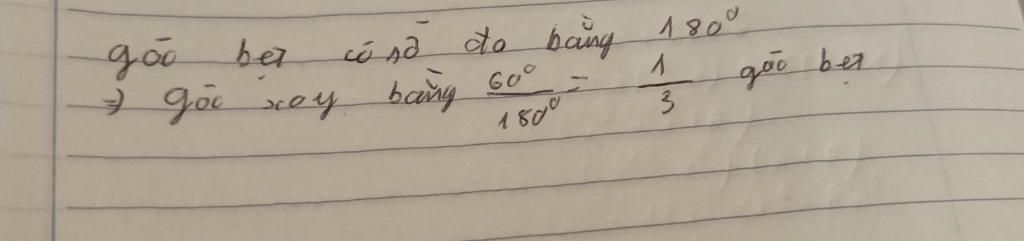 góc bẹt có số đo bằng 180°
=> góc xoy bằng 60°/180° = 1/3 góc bẹt